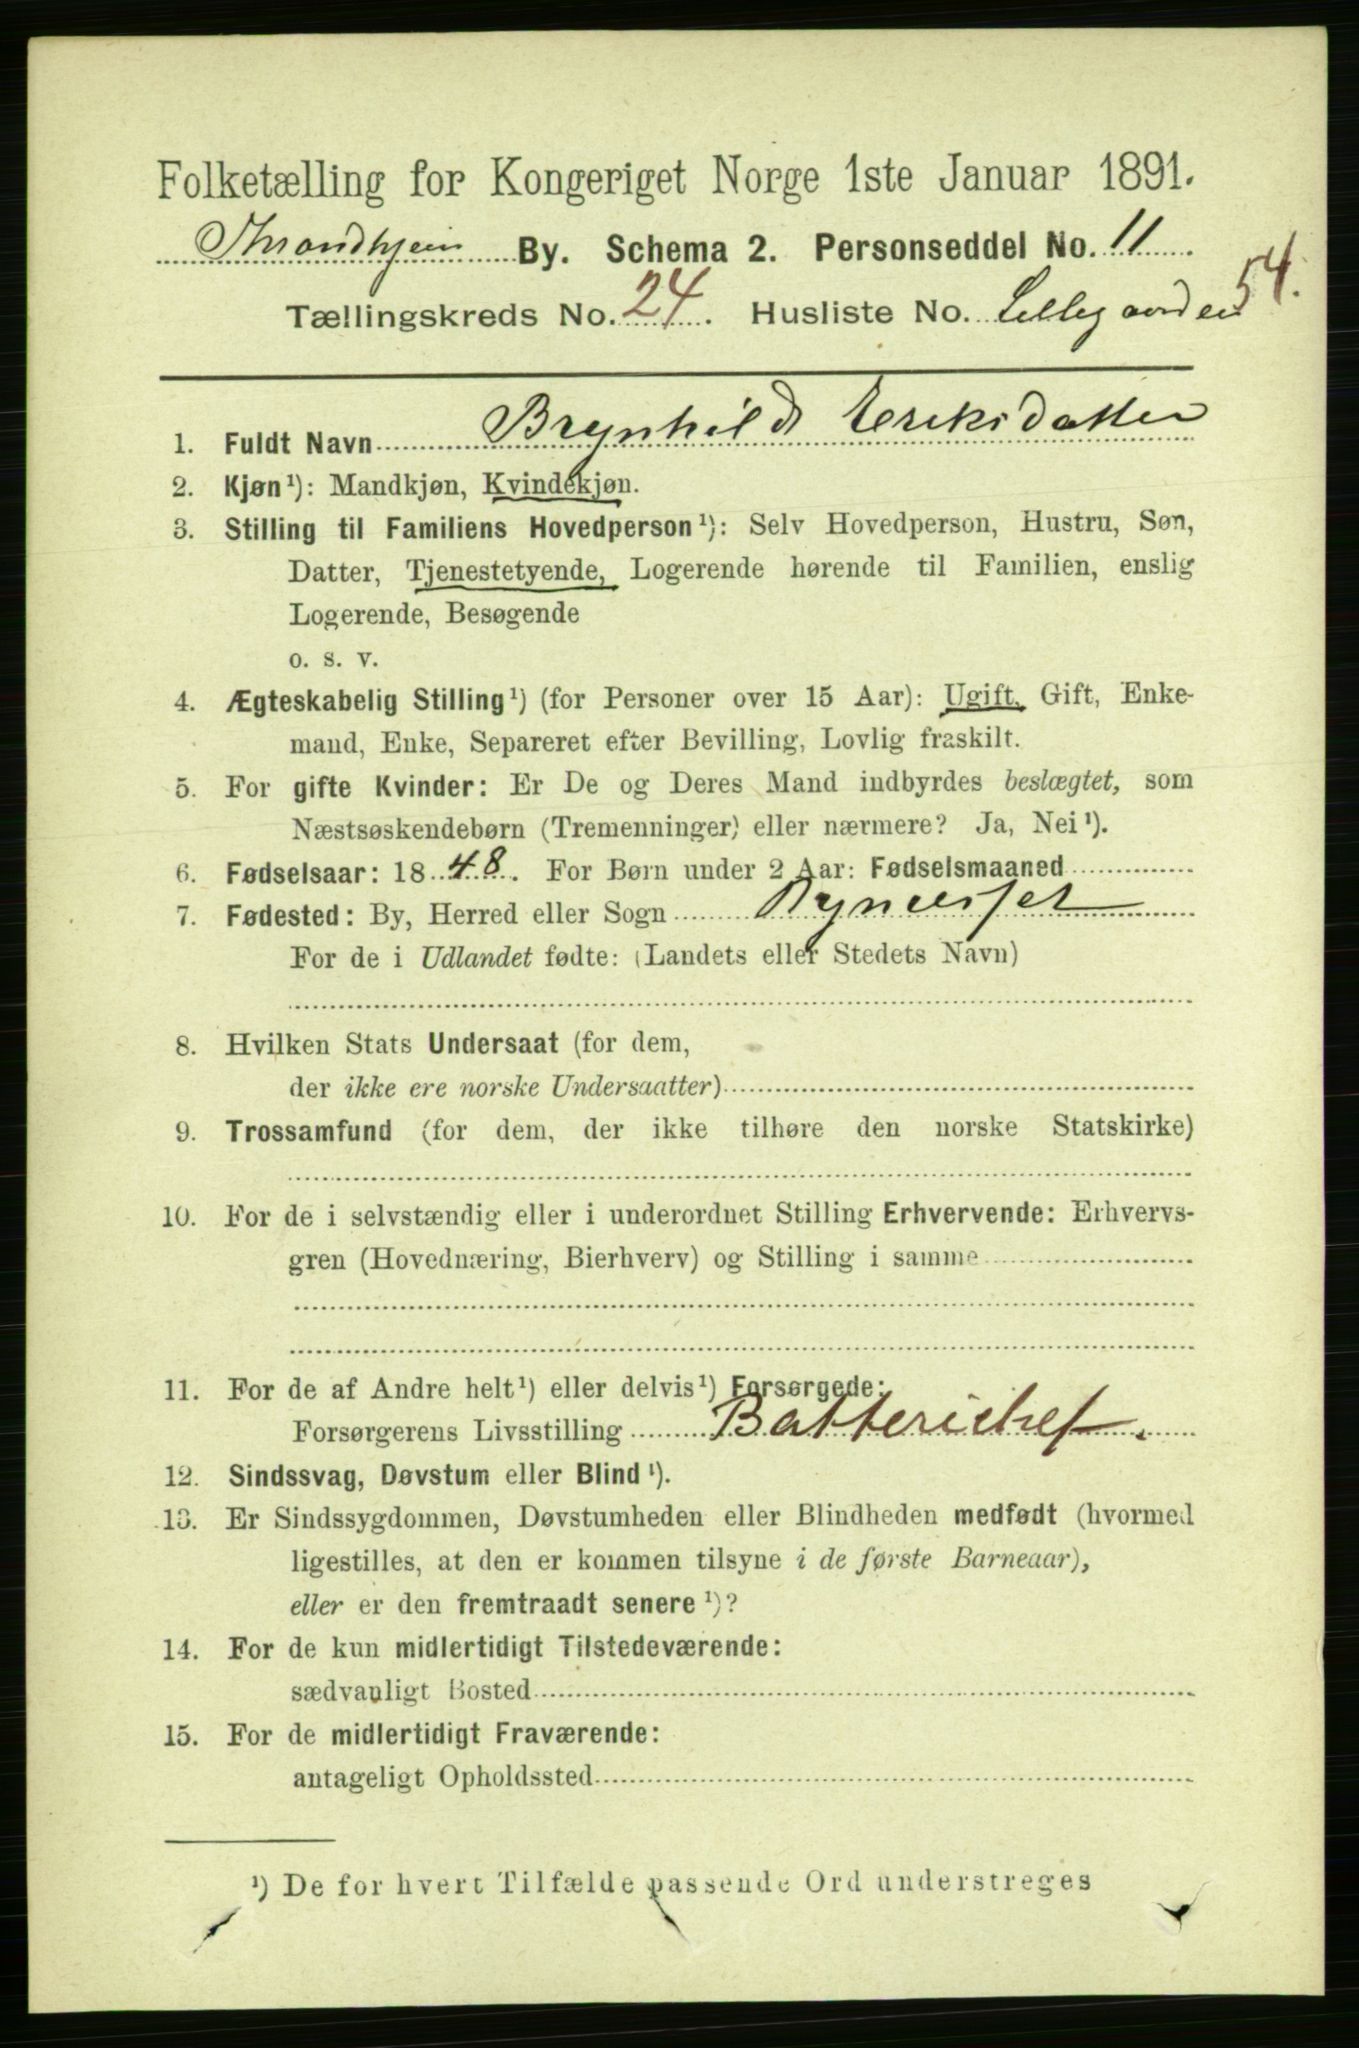 Folketælling for Kongeriget Norge 1ste Januar 1891.
Throndhjem By. Schema 2. Personseddel No. 11
Tællingskreds No. 24. Husliste No. Lillegaarden 54.
1. Fuldt Navn Brynhild Eriksdatter
2. Kjøn¹): Mandkjøn, Kvindekjøn.
3. Stilling til Familiens Hovedperson¹): Selv Hovedperson, Hustru, Søn,
Datter, Tjenestetyende, Logerende hørende til Familien, enslig
Logerende, Besøgende
o. s. v.
4. Ægteskabelig Stilling¹) (for Personer over 15 Aar): Ugift, Gift, Enke-
mand, Enke, Separeret efter Bevilling, Lovlig fraskilt.
5. For gifte Kvinder: Er De og Deres Mand indbyrdes beslægtet, som
Næstsøskendebørn (Tremenninger) eller nærmere? Ja, Nei¹).
6. Fødselsaar: 1848. For Børn under 2 Aar: Fødselsmaaned
7. Fødested: By, Herred eller Sogn Bynesset
For de i Udlandet fødte: (Landets eller Stedets Navn)
8. Hvilken Stats Undersaat (for dem,
der ikke ere norske Undersaatter)
9. Trossamfund (for dem, der ikke tilhøre den norske Statskirke)
10. For de i selvstændig eller i underordnet Stilling Erhvervende: Erhvervs-
gren (Hovednæring, Bierhverv) og Stilling i samme
11. For de af Andre helt¹) eller delvis¹) Forsørgede:
Forsørgerens Livsstilling Batterichef.
12. Sindssvag, Døvstum eller Blind¹).
13. Er Sindssygdommen, Døvstumheden eller Blindheden medfødt (hvormed
ligestilles, at den er kommen tilsyne i de første Barneaar),
eller er den fremtraadt senere¹)?
14. For de kun midlertidigt Tilstedeværende:
sædvanligt Bosted
15. For de midlertidigt Fraværende:
antageligt Opholdssted
¹) De for hvert Tilfælde passende Ord understreges